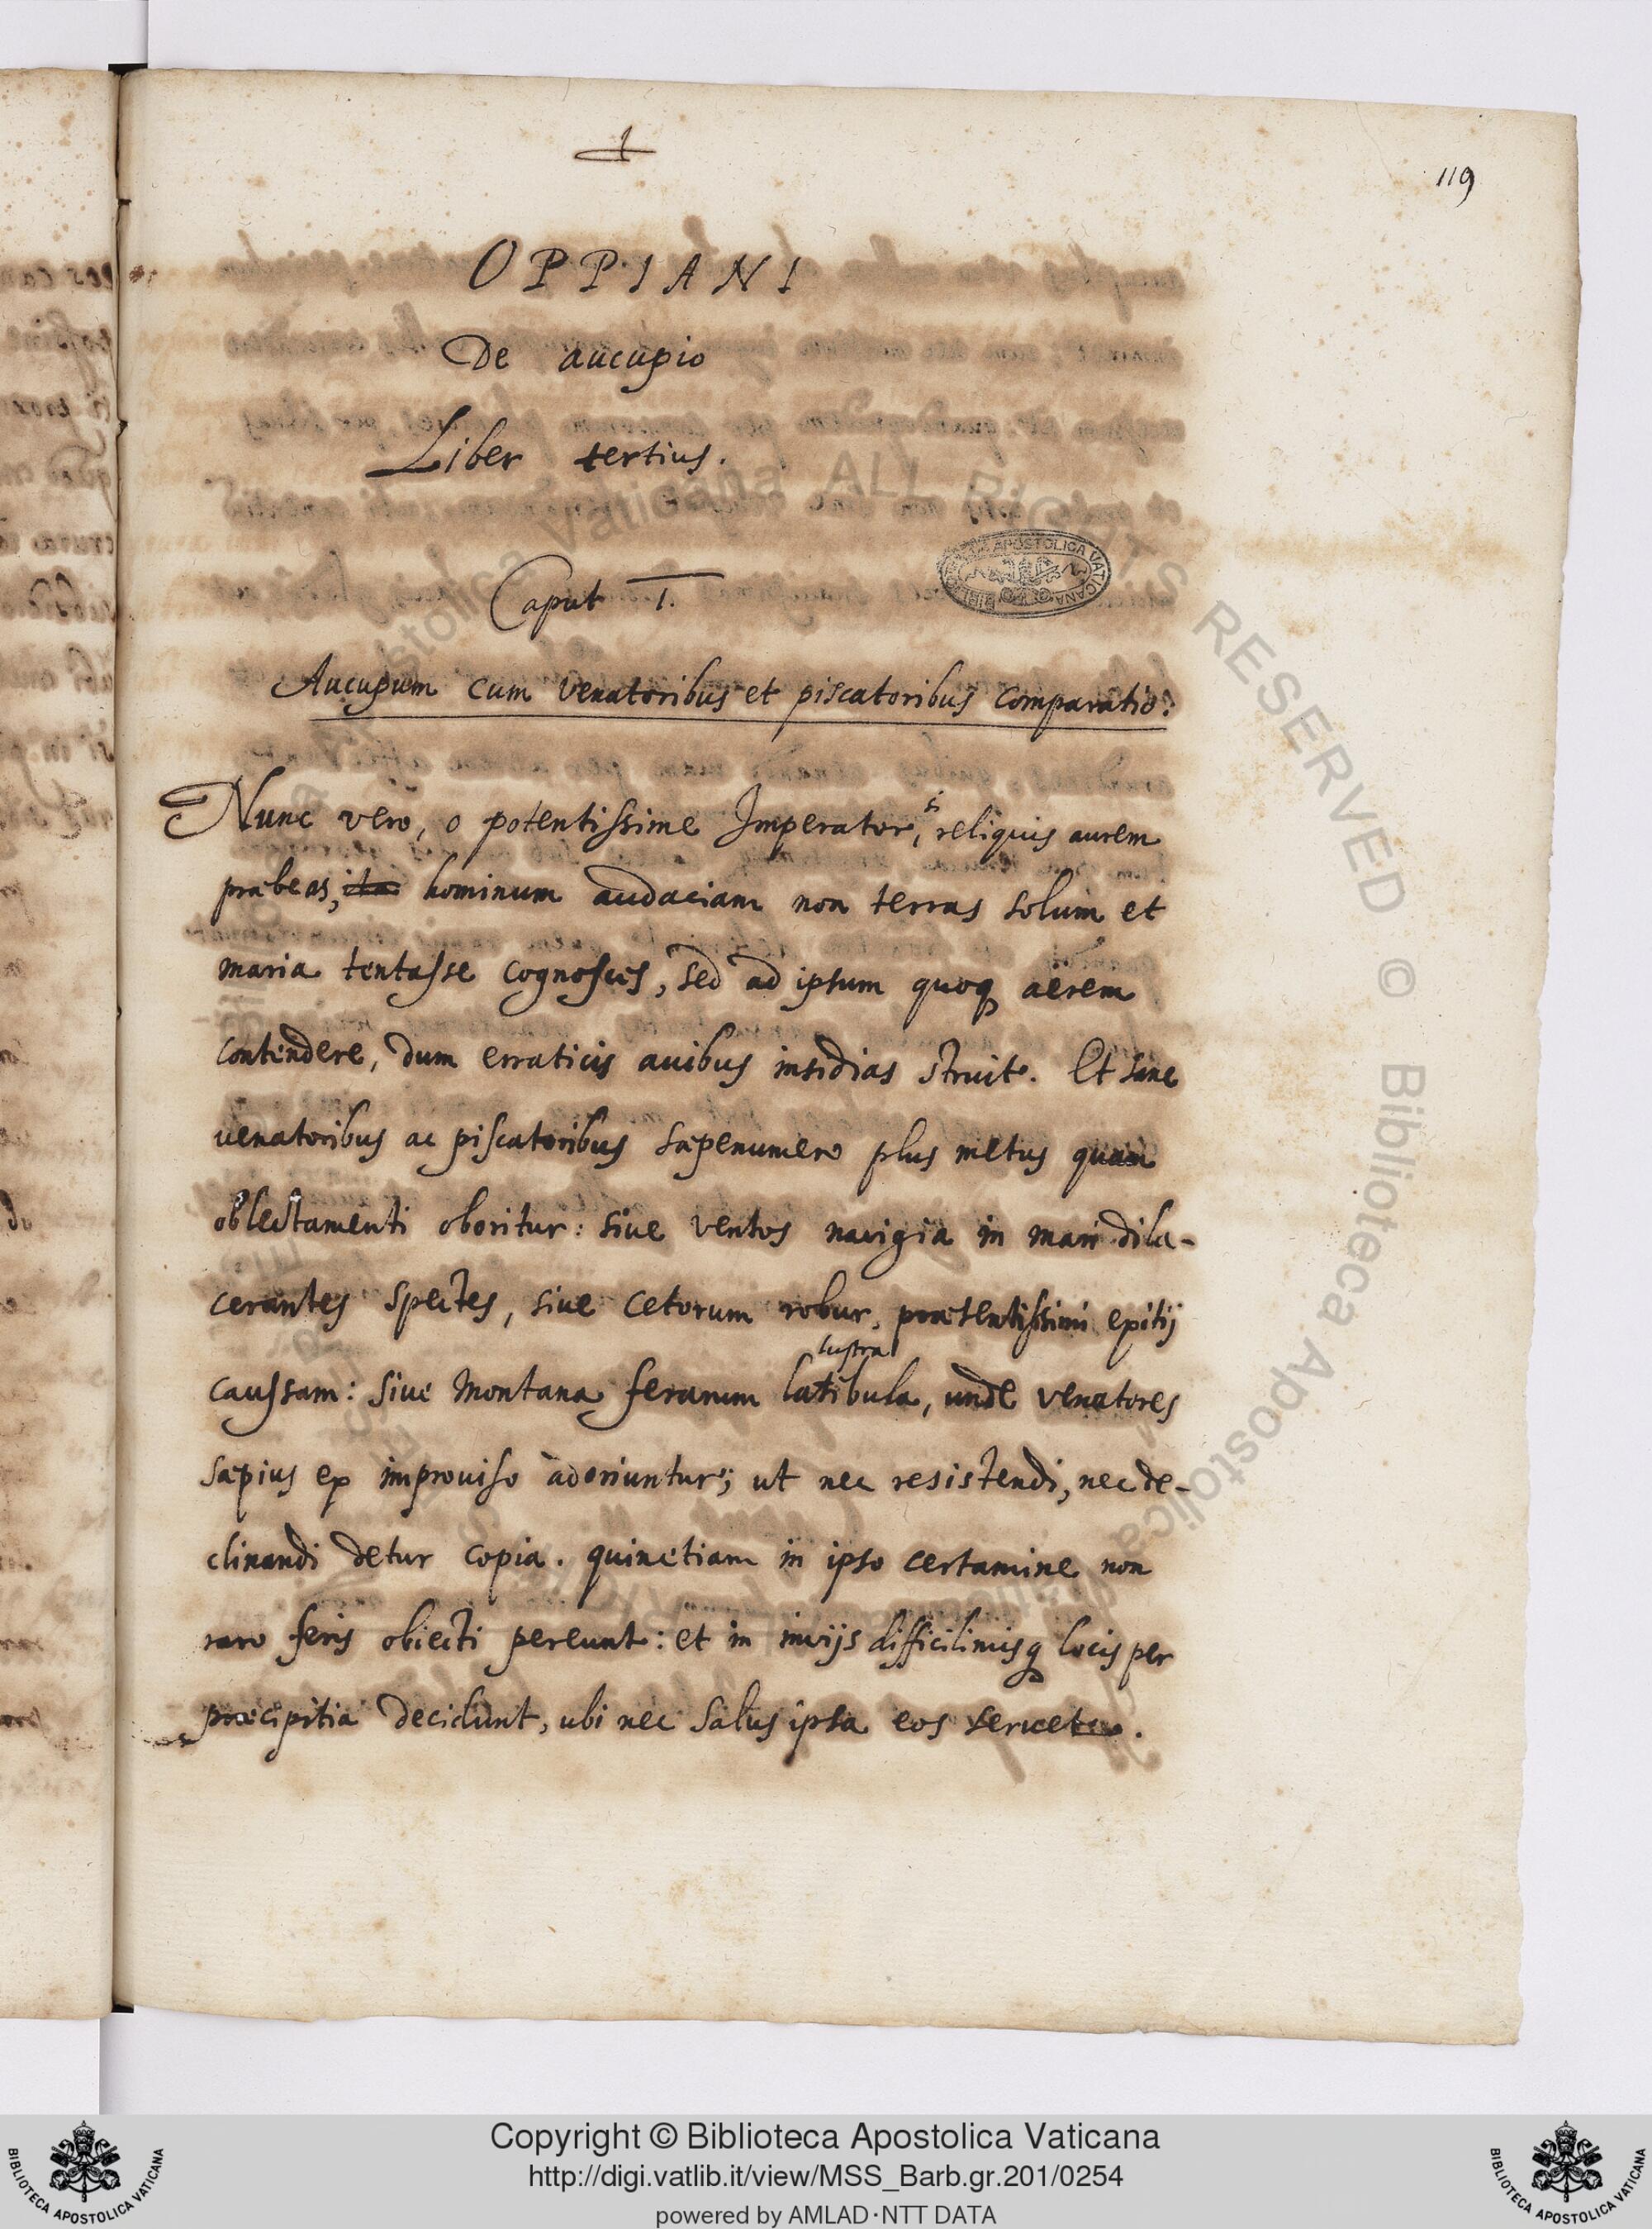 119
OPPIANI
De aucupio
Liber tertius.
Caput I.
Aucupum cum venatoribus et piscatoribus comparatio.
Nunc vero, o potentissime Imperator, si reliquis aurem
præbeas, ita hominum audaciam non terras solum et
maria tentasse cognosces, sed ad ipsum quoq aerem
contendere, dum erraticis auibus insidias struit. Et sane
uenatoribus ac piscatoribus sæpenumero plus metus quam
oblectamenti oboritur: siue ventos navigia in mari dila-
cerantes spectes, siue cetorum robur, præsentissimi exitij
caussam: siue montana ferarum latibula, unde venatores
lustra
sæpius ex improuiso adoriuntur; ut nec resistendi, nec de-
clinandi detur copia. quinetiam in ipso certamine non
raro feris obiecti pereunt: et in inuijs difficilimisq locis per
præcipitia decidunt, ubi nec salus ipsa eos seruet.
BIBLIOTECA APOSTOLICA VATICANA
Biblioteca Apostolica Vaticana ALL RIGHTS RESERVED ©
Copyright © Biblioteca Apostolica Vaticana
http://digi.vatlib.it/view/MSS_Barb.gr.201/0254
powered by AMLAD·NTT DATA
BIBLIOTECA APOSTOLICA VATICANA
BIBLIOTECA APOSTOLICA VATICANA